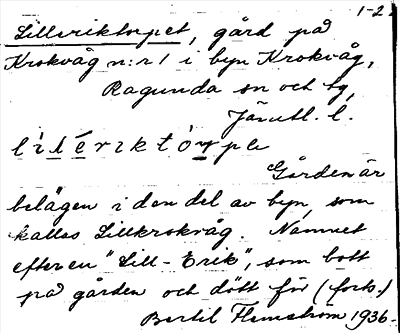 1-2.
Lilleriktorpet, gård på
Krokvåg n:r 1 i byn Krokvåg,
Ragunda sn och tg,
Jämtl. l.
lìlériktòrpe
Gården är
belägen i den del av byn, som
kallas Lillkrokvåg. Namnet
efter en "Lill-Erik", som bott
på gården och dött för (forts.)
Bertil Flemström 1936.